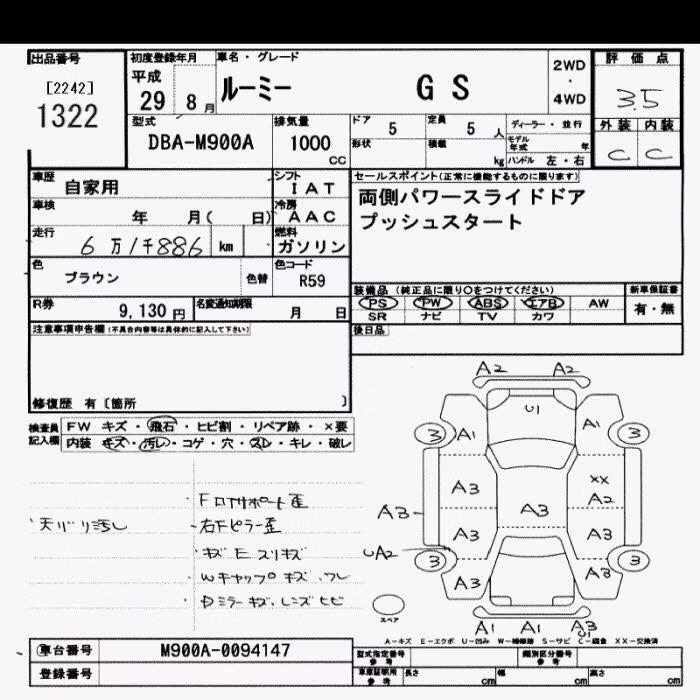 出品番号 初度登録年月 車名・グレード 評価点
[2242] 1322
平成 29 8月 ルーミー GS 2WD・4WD 3.5
型式 DBA-M900A 排気量 1000 CC
ドア 5 定員 5人 ディーラー・並行 外装 内装
形状 積載 kg モデル年式 年 C C
ハンドル 左・右
車歴 自家用 シフト IAT セールスポイント(正常に機能するものに限ります)
車検 年 月( 日) 冷房 AAC 両側パワースライドドア
プッシュスタート
走行 6万1千886km 燃料 ガソリン
色 ブラウン 色替 色コード R59
装備品 (純正品に限り○をつけてください) 新車保証書
R券 9,130円 名変通知期限 月 日 PS PW ABS エアB AW 有・無
SR ナビ TV カワ
注意事項申告欄(不具合内容等は具体的に記入して下さい) 後日品
修復歴 有〔箇所 〕
検査員記入欄 FW キズ・飛石・ヒビ割・リペア跡・×要
内装 キズ・汚レ・コゲ・穴・スレ・キレ・破レ
A2 A2
U1
3 A1 A1 3
A3 XX A2
A3 A3
A3 A3
UA2
3 3
A3 A3
A1 A1 A3
U1
天バリ汚し
・右下ピラー歪
・キズ E スリキズ
・Wキャップキズ
・Dミラーキズ、レンズヒビ
スペア
A-キズ E-エクボ U-凹み W-補修跡 S-サビ C-腐食 XX-交換済
車台番号 M900A-0094147 型式指定番号 参考 類別区分番号 参考
登録番号 車庫証明用 参考 長さ cm 幅 cm 高さ cm